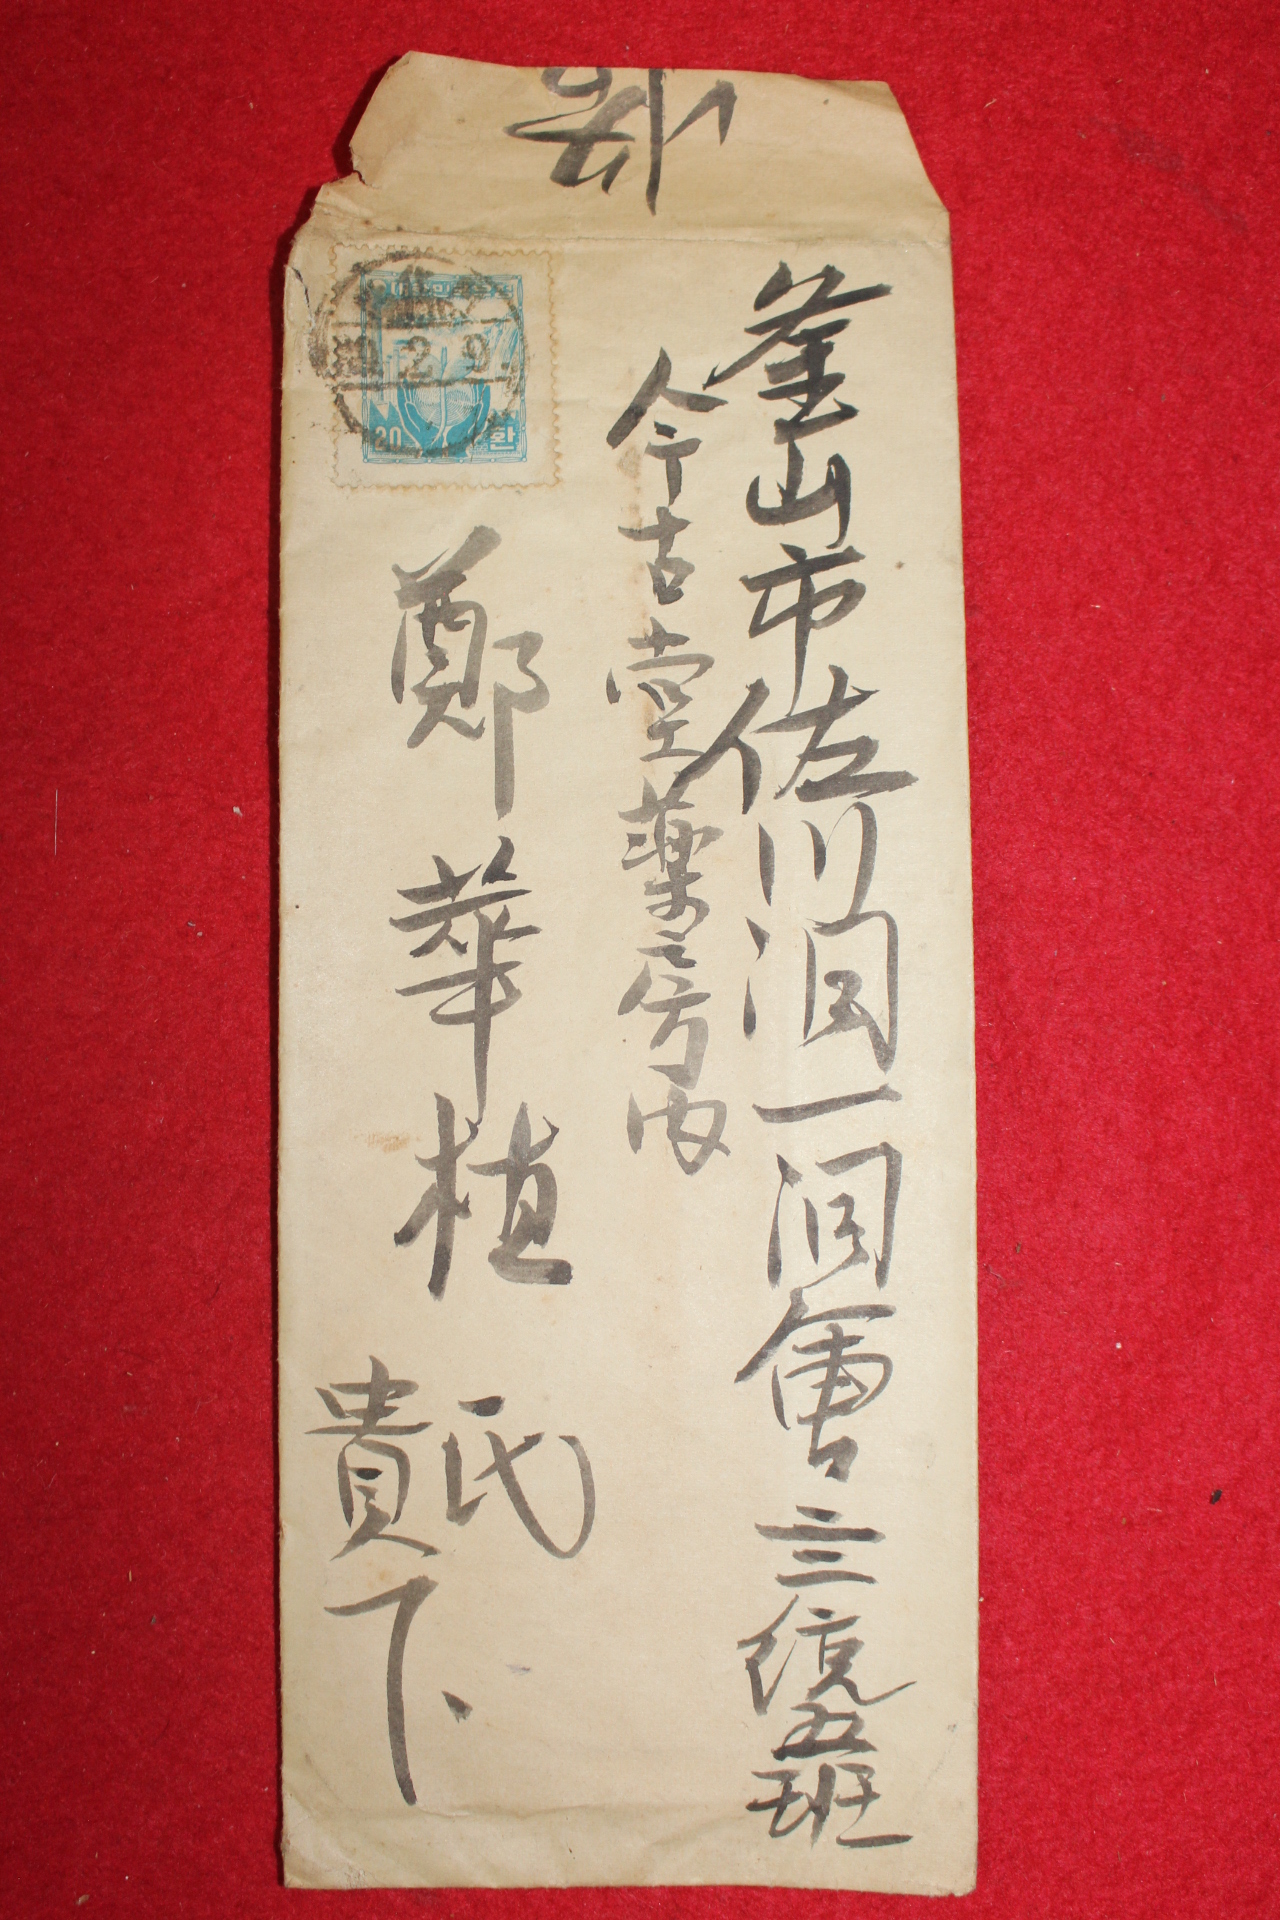 釜山市佐川洞一洞會三統五班
今古堂藥房内
鄭華植氏
貴下
2. 9.
20 환